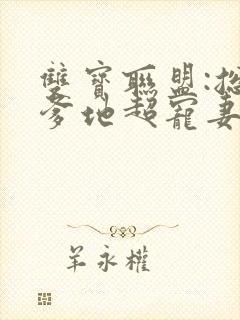 雙寶聯盟:總
爹地超寵妻
羊永權